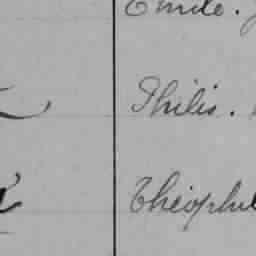 Emile.
Philis.
Théophil